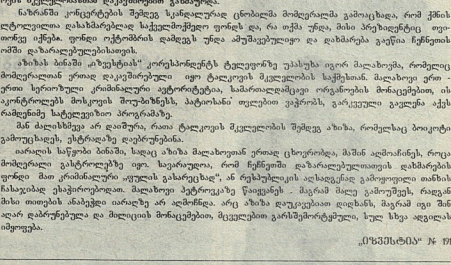 ნაზრანში კონცერტების შემდეგ სკანდალურად ცნობილმა მომღერალმა გამოაცხადა, რომ ქმნის
ლტოლვილთა დასახმარებლად საქველმოქმედო ფონდს და, რა თქმა უნდა, მისი პრეზიდენტიც თვი-
თონვე იქნება. ფონდი ოქტომბრის დამდეგს უნდა ამუშავებულიყო და დახმარება გაეწია ჩეჩნეთის
ომში დაზარალებულებისათვის.
აზიზას ბინაში „იზვესტიას" კორესპონდენტს ტელეფონზე უპასუხა იგორ მალახოვმა, რომელიც
მომღერალთან ერთად დაკავშირებული იყო ტალკოვის მკვლელობის საქმესთან. მალახოვი ერთ-
ერთი სერიოზული კრიმინალური ავტორიტეტია, სამართალდამცავი ორგანოების მონაცემებით, ის
აკონტროლებს მოსკოვის შოუ-ბიზნესს, პატიოსანი თვლებით ვაჭრობს, გარკვეული გავლენა აქვს
რამდენიმე სატელევიზიო პროგრამაზე.
მან ძალისხმევა არ დაიშურა, რათა ტალკოვის მკვლელობის შემდეგ აზიზა, რომელსაც ბოიკოტი
გამოუცხადეს, ესტრადაზე დაებრუნებინა.
იარაღის საწყობი ბინაში, სადაც აზიზა მალახოვთან ერთად ცხოვრობდა, მაშინ აღმოაჩინეს, როცა
მომღერალი გასტროლებზე იყო. სავარაუდოა, რომ ჩეჩნეთში დაზარალებულთათვის დახმარების
ფონდი მათ კრიმინალური „ფულის გასარეცხად", ან რესპუბლიკის აღსადგენად გამოყოფილი თანხის
ჩასაჯიბად ესაჭიროებოდათ. მალახოვი პეტროვკაზე წაიყვანეს. მაგრამ მალე გამოუშვეს, რადგან
მისი თითების ანაბეჭდი იარაღზე არ აღმოჩნდა. არც აზიზა დაუკავებიათ დიდხანს, მაგრამ იგი შინ
აღარ დაბრუნებულა და მილიციის მონაცემებით, მცველებით გარსშემორტყმული, სულ სხვა ადგილას
იმყოფება.
„ИЗВЕСТИЯ" №